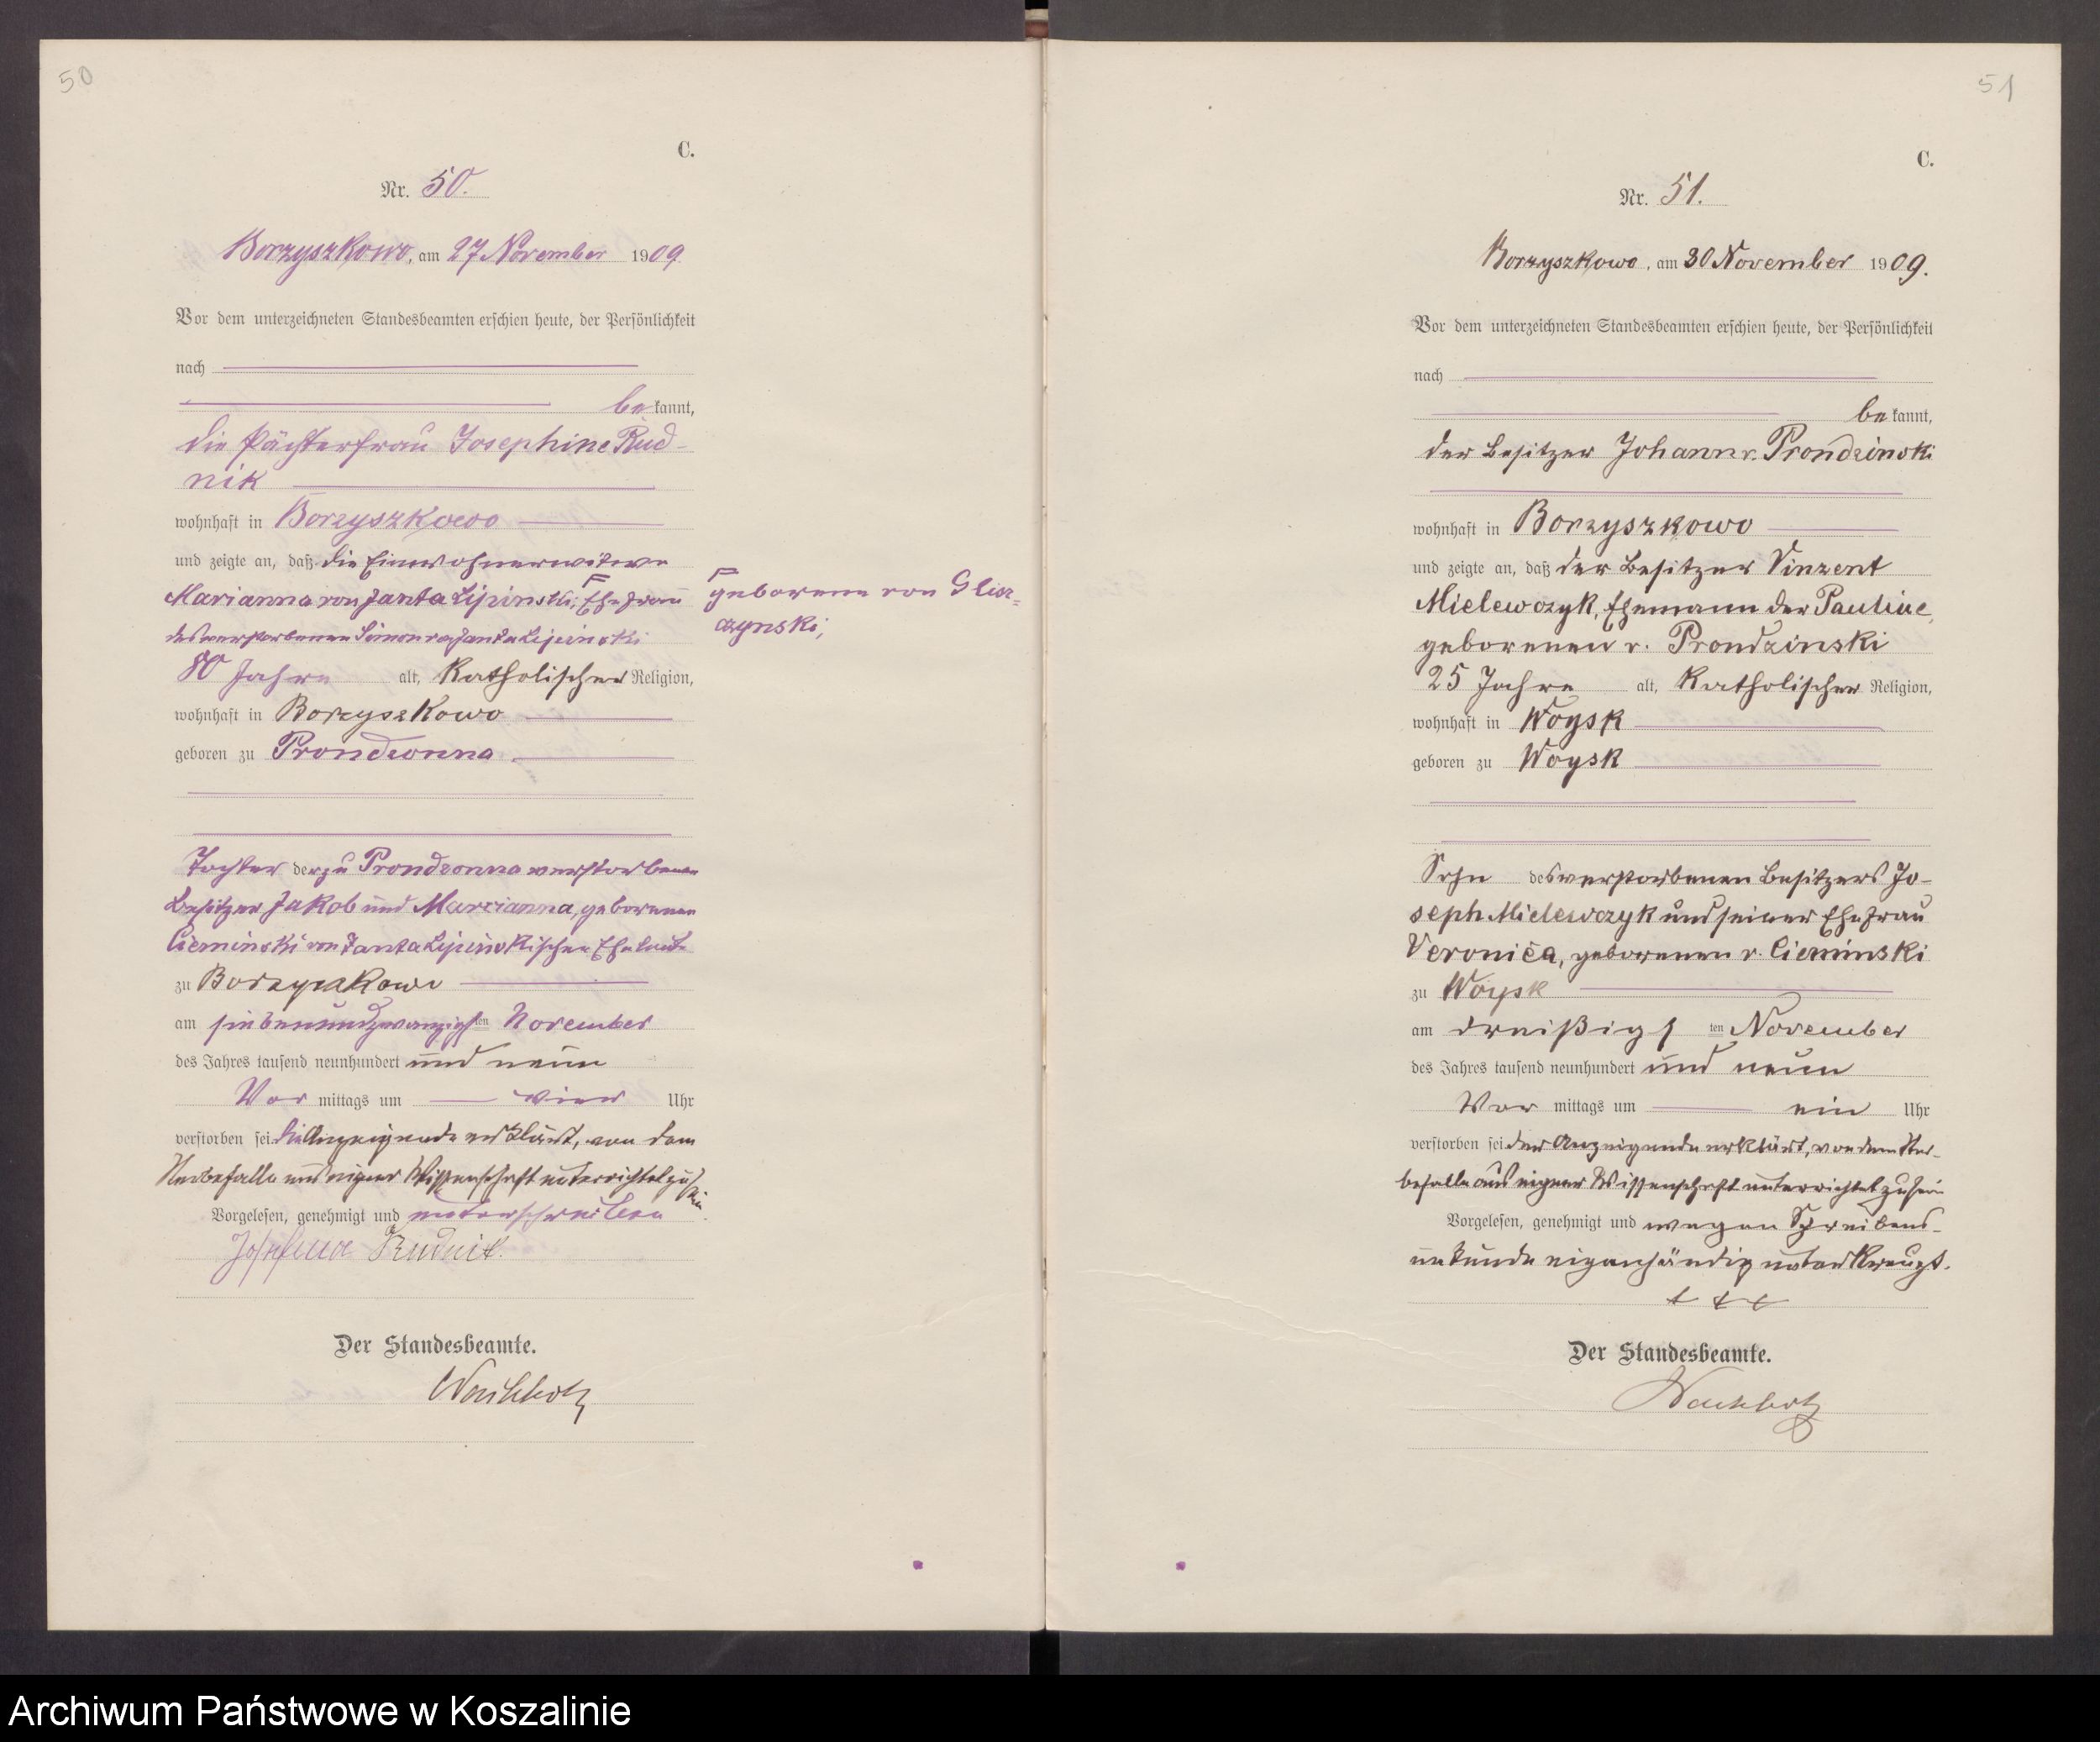 50
C.
Nr. 50.
Borzyszkowo, am 27 November 1909
Vor dem unterzeichneten Standesbeamten erschien heute, der Persönlichkeit
nach
bekannt,
die Pächterfrau Josephine Rud-
nik
wohnhaft in Borzyszkowo
und zeigte an, daß die Einwohnerwitwe
Marianna von Janta Lipinski, Ehefrau
des verstorbenen Simon von Janta Lipinski
geborene von Glisz=
czynski,
80 Jahre alt, Katholischer Religion,
wohnhaft in Borzyszkowo
geboren zu Prondzonna
Tochter der zu Prondzonna verstorbenen
Besitzer Jakob und Marianna, geborenen
Cieminski von Janta Lipinskischen Eheleute
zu Borzyszkowo
am siebenundzwanzigsten November
des Jahres tausend neunhundert und neun
Vormittags um vier Uhr
verstorben sei. Die Anzeigende erklärt, von dem
Sterbefalle aus eigner Wissenschaft unterrichtet zu sein.
Vorgelesen, genehmigt und unterschrieben
Josefina Rudnik.
Der Standesbeamte.
51
C.
Nr. 51.
Borzyszkowo, am 30 November 1909.
Vor dem unterzeichneten Standesbeamten erschien heute, der Persönlichkeit
nach
bekannt,
der Besitzer Johann v. Prondzinski
wohnhaft in Borzyszkowo
und zeigte an, daß der Besitzer Vinzent
Mielewczyk, Ehemann der Pauline,
geborenen v. Prondzinski
25 Jahre alt, Katholischer Religion,
wohnhaft in Woysk
geboren zu Woysk
Sohn des verstorbenen Besitzers Jo-
seph Mielewczyk und seiner Ehefrau
Veronica, geborenen v. Cieminski
zu Woysk
am dreißigsten November
des Jahres tausend neunhundert und neun
Vormittags um ein Uhr
verstorben sei. Der Anzeigende erklärt, von dem Ster-
befalle aus eigner Wissenschaft unterrichtet zu sein
Vorgelesen, genehmigt und wegen Schreibens-
unkunde eigenhändig unterkreuzt.
+ + +
Der Standesbeamte.
Archiwum Państwowe w Koszalinie